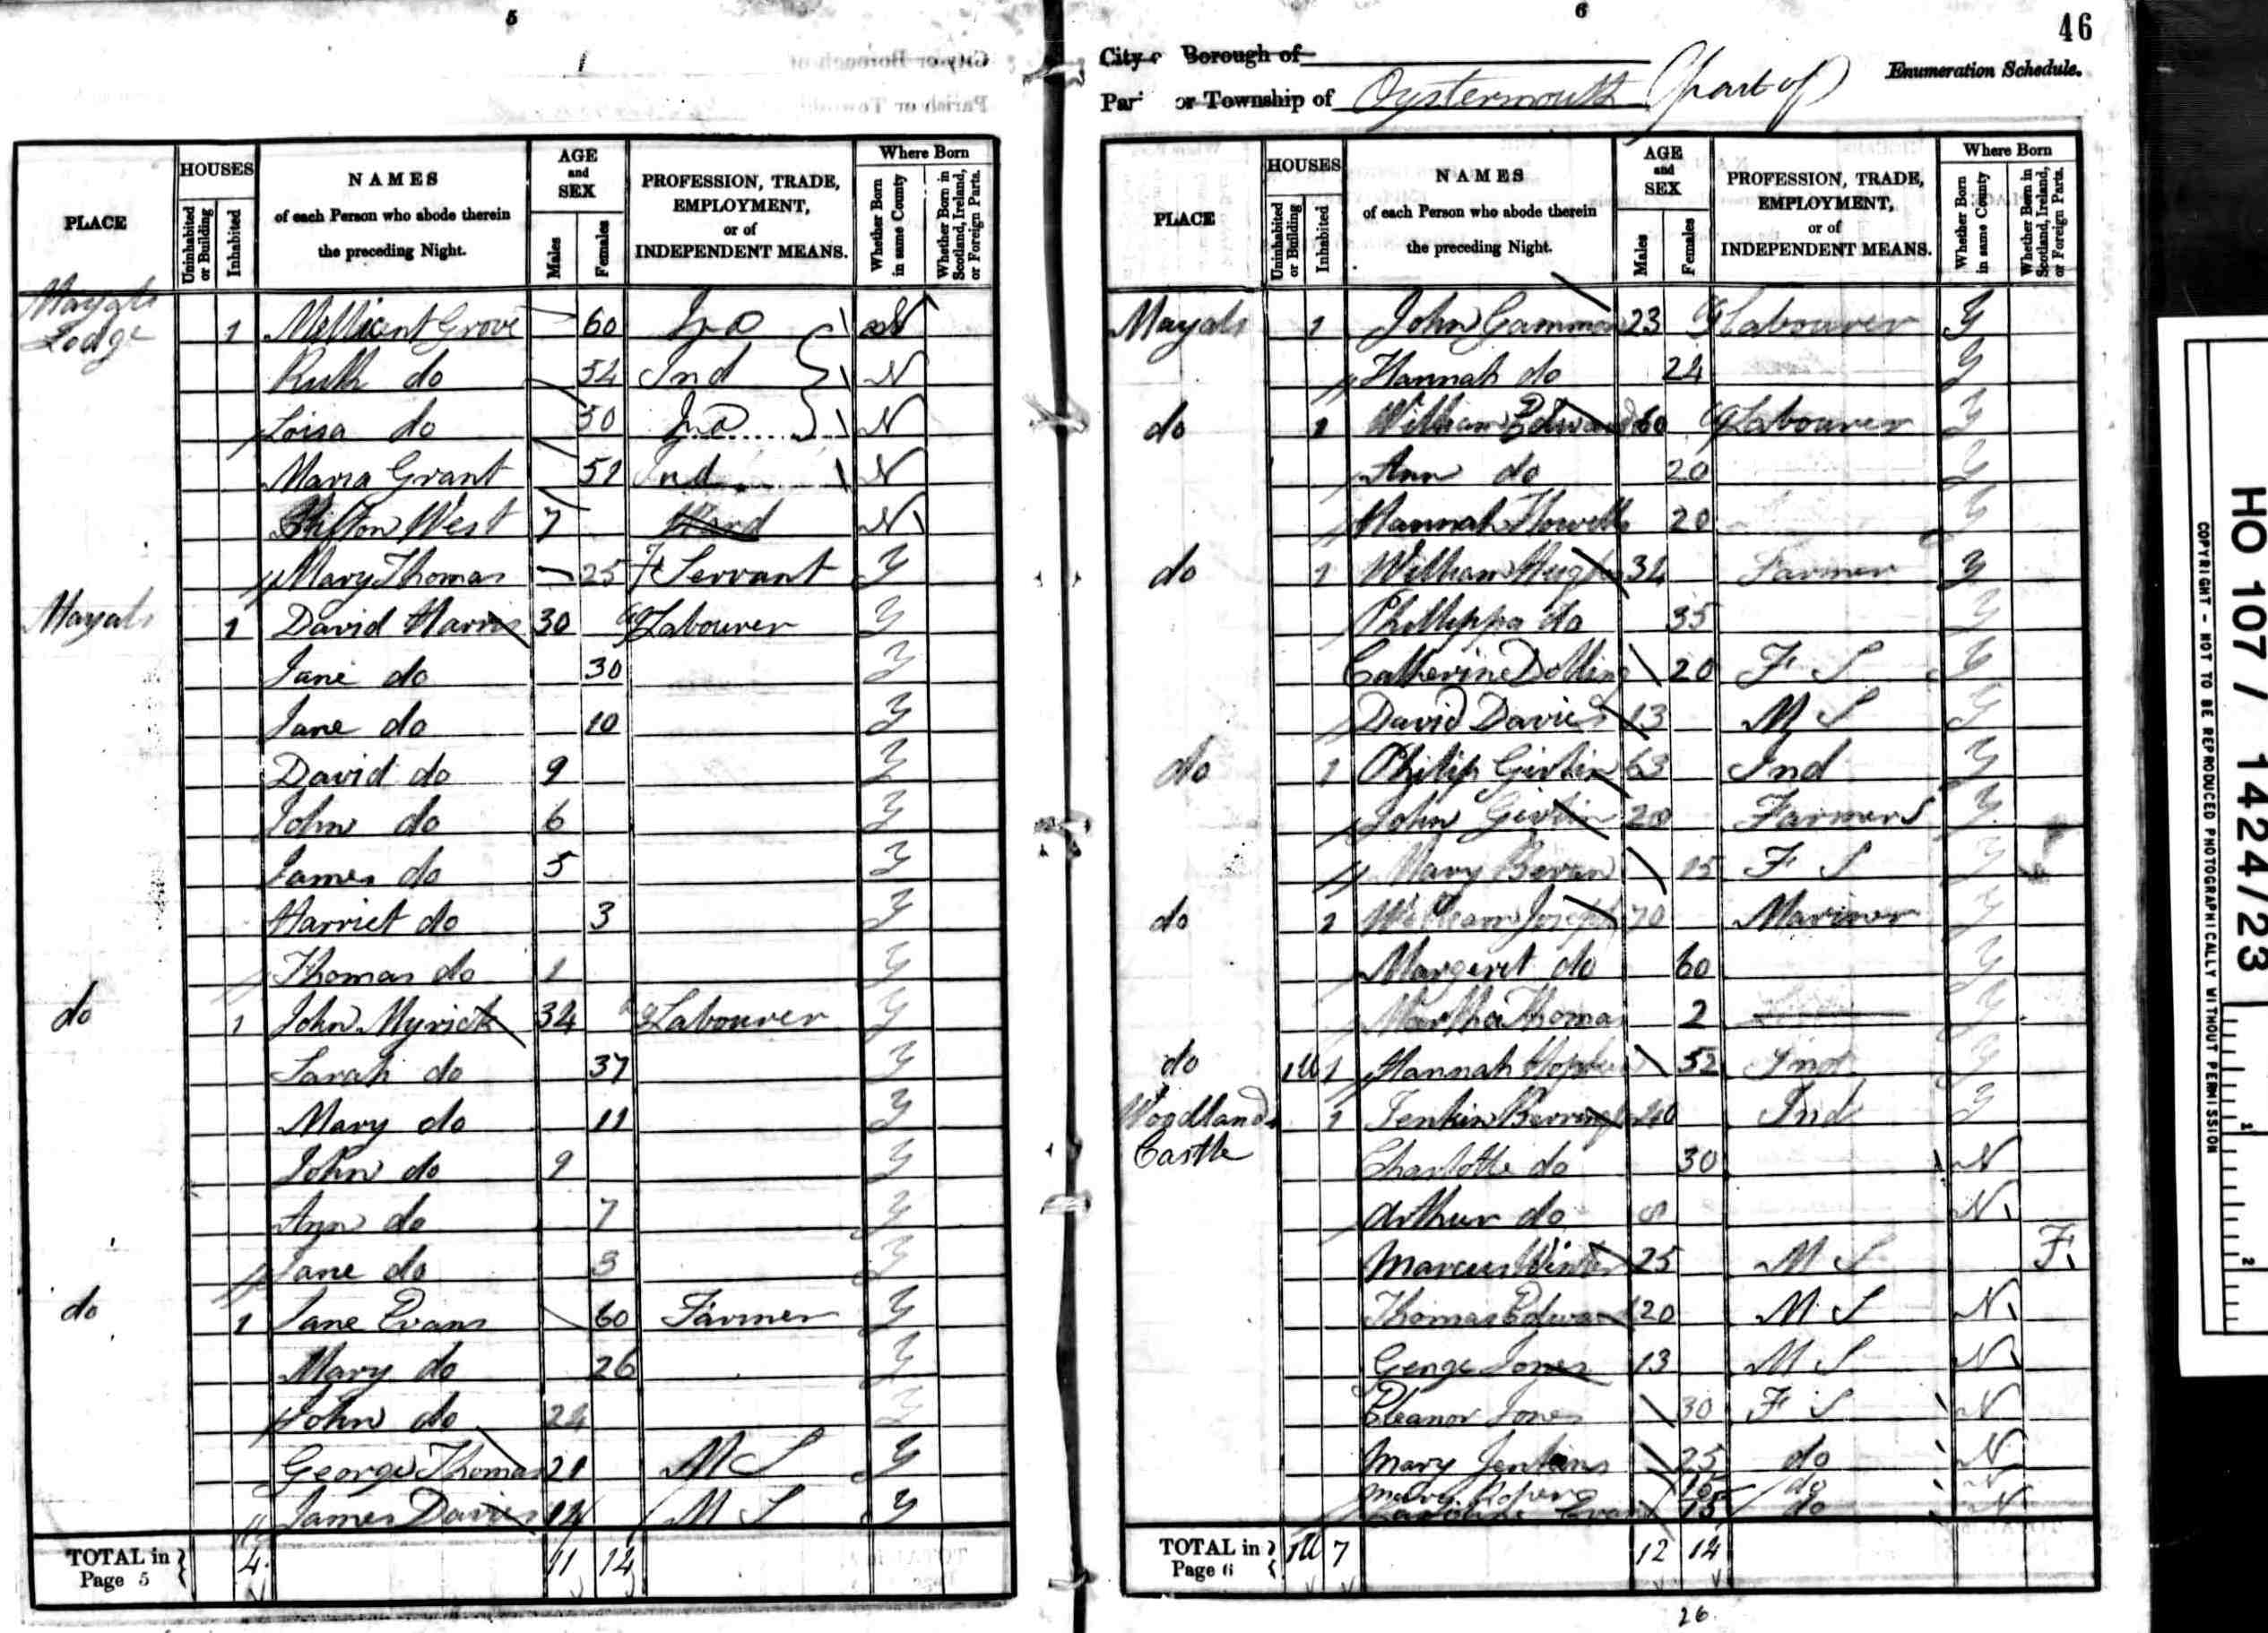 5
1
PLACE
HOUSES
Uninhabited or Building
Inhabited
NAMES
of each Person who abode therein
the preceding Night.
AGE and SEX
Males
Females
PROFESSION, TRADE, EMPLOYMENT, or of INDEPENDENT MEANS.
Where Born
Whether Born in same County
Whether Born in Scotland, Ireland, or Foreign Parts.
Mayals Lodge 1 Millicent Grove 60 Ind N
Ruth do 54 Ind N
Loisa do 50 Ind N
Maria Grant 51 Ind N
West 7 N
Mary Thomas 25 F Servant Y
Mayals 1 David Harris 30 Ag Labourer Y
Jane do 30 Y
Jane do 10 Y
David do 9 Y
John do 6 Y
James do 5 Y
Harriet do 3 Y
Thomas do 1 Y
do 1 John Myrick 34 Ag Labourer Y
Sarah do 37 Y
Mary do 11 Y
John do 9 Y
Ann do 7 Y
Jane do 3 Y
do 1 Jane Evans 60 Farmer Y
Mary do 26 Y
John do 24 Y
George Thomas 21 M S Y
James Davies 14 M S Y
TOTAL in Page 5 4 11 14
6
46
City or Borough of
Enumeration Schedule.
Par or Township of Oystermouth (part of)
PLACE
HOUSES
Uninhabited or Building
Inhabited
NAMES
of each Person who abode therein
the preceding Night.
AGE and SEX
Males
Females
PROFESSION, TRADE, EMPLOYMENT, or of INDEPENDENT MEANS.
Where Born
Whether Born in same County
Whether Born in Scotland, Ireland, or Foreign Parts.
Mayals 1 John Gammon 23 Ag Labourer Y
Hannah do 24 Y
do 1 William Edward 60 Ag Labourer Y
Ann do 20 Y
Hannah Howells 20 Y
do 1 William Hughes 34 Farmer Y
Phillippa do 35 Y
Catherine Dolling 20 F S Y
David Davies 13 M S Y
do 1 Philip 63 Ind Y
John 20 Farmer Y
Mary Bevan 15 F S Y
do 1 William Joseph 70 Mariner Y
Margeret do 60 Y
Martha Thomas 2 Y
do 1U 1 Hannah 52 Ind Y
Woodlands Castle 1 Jenkin 40 Ind Y
Charlotte do 30 N
Arthur do 8 N
Marcus Winter 25 M S F
Thomas Edward 20 M S N
George Jones 13 M S N
Eleanor Jones 30 F S N
Mary Jenkins 25 do N
Mary 15 do N
Caroline Evans 15 do N
TOTAL in Page 6 1U 7 12 14
26
HO 107 / 1424/23
COPYRIGHT - NOT TO BE REPRODUCED PHOTOGRAPHICALLY WITHOUT PERMISSION
1
2